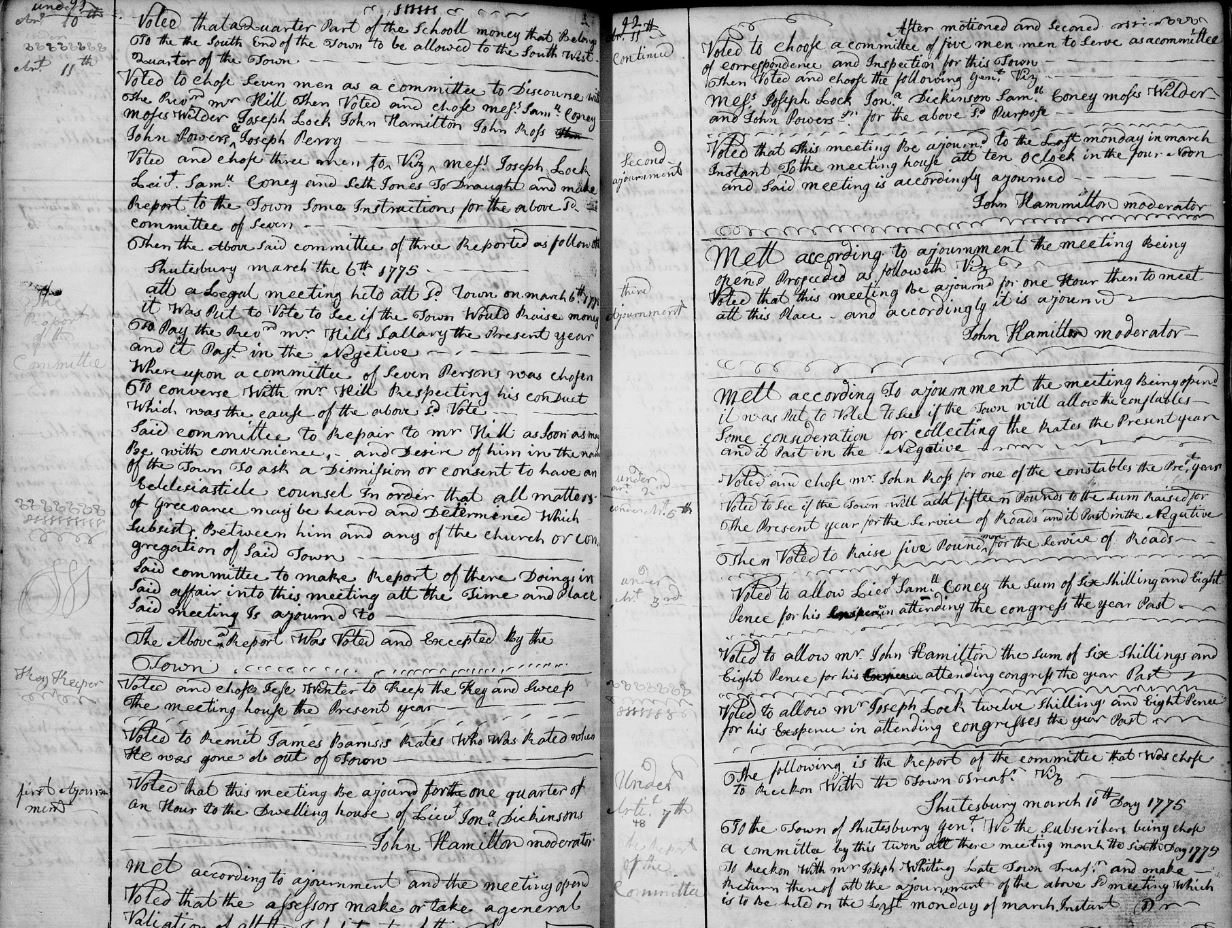 under
Art. 10th
Voted that a Quarter Part of the Schooll money that Belongs
To the the South End of the Town to be allowed to the South West
Quarter of the Town
Art 11th
Voted to chose Seven men as a committee to Discourse with
The Revrd mr Hill Then Voted and chose mess. Samll Coney
moses Wilder Joseph Lock John Hamilton John Ross
John Powers & Joseph Perry
Voted and chose three men to Viz mess. Joseph Lock
Leiut. Samll Coney and Seth Jones To Draught and make
Report to the Town Some Instructions for the above Sd
committee of Seven
Then the Above Said committee of three Reported as followeth
Shutesbury march the 6th 1775
att a Legal meeting held att Sd Town on march 6th 1775
it Was Put to Vote to See if the Town Would Raise money
To Pay the Revrd mr Hills Sallary the Present year
and it Past in the Negetive
Where upon a committee of Seven Persons was chosen
To converse With mr Hill Respecting his conduct
Which was the cause of the above Sd Vote
Committee
Said committee to Repair to mr Hill as Soon as may
Be with convenience, and Desire of him in the name
of the Town To ask a Dismission or consent to have an
Ecclesiasticle counsel In order that all matters
of Greevance may be heard and Determened Which
Subsist Between him and any of the church or con
gregation of Said Town
Said committee to make Report of there Doings in
Said affair into this meeting att the Time and Place
Said meeting Is ajournd to
The Above Report Was Voted and Excepted By the
Town
Key Keeper
Voted and chose Jese Winter to Keep the Key and Sweep
The meeting house the Present year
Voted to Remit James Bamsis Rates Who Was Rated when
He was gone out of Town
first ajourn
ment
Voted that this meeting Be ajournd for the one quarter of
an Hour to the Dwelling house of Lieut Jona Dickinsons
John Hamilton moderator
Met according to ajournment and the meeting opend
Voted that the asessors make or take a general
Valiation of all the
Art. 11th
Continued
After motioned and Second
Voted to choose a committee of five men men to Serve as a committee
of correspondence and Inspection for this Town
Then Voted and choose the following Gent. Viz
Mess Joseph Lock Jona Dickinson Samll Coney moses Wilder
and John Powers for the above Sd Purpose
Second
ajournment
Voted that this meeting Be ajournd to the Last monday in march
Instant To the meeting house att ten Oclock in the four Noon
and Said meeting is accordingly ajourned
John Hammilton moderator
Mett according to ajournment the meeting Being
opend Proceded as followeth Viz
third
ajournment
Voted that this meeting Be ajournd for one Hour then to meet
att this Place - and accordingly it is ajournd
John Hamilton moderator
Mett according To ajournment the meeting Being opend
it was Put to Vote to See if the Town will allow the constables
Some consideration for collecting the Rates the Present year
and it Past in the Negative
under
art 2nd
Voted and chose mr. John Ross for one of the constables the Present year
5th
Voted to See if the Town will add fifteen Pounds to the Sum Raised for
The Present year for the Service of Roads and it Past in the Negative
Then Voted to Raise five Pounds more for the Service of Roads
under
Art 3rd
Voted to allow Lieut Samll Coney the Sum of Six Shilling and Eight
Pence for his in attending the congress the year Past
Voted to allow mr. John Hamilton the Sum of Six Shillings and
Eight Pence for his attending congress the year Past
Voted to allow mr Joseph Lock twelve Shilling and Eight Pence
for his Exspence in attending congresses the year Past
Under
Arti. 7th
48
the Report
of the
Committee
The following is the Report of the committee that Was chose
to Reckon With the Town Treasr. Viz
Shutesbury march 10th Day 1775
To the Town of Shutesbury Gent. We the Subscribers being chose
a committee by this twon att there meeting march the sixth Day 1775
To Reckon With mr Joseph Whiting Late Town Treasr. and make
Return thereof att the ajournment of the above Sd meeting Which
is to be held on the Last monday of march Instant